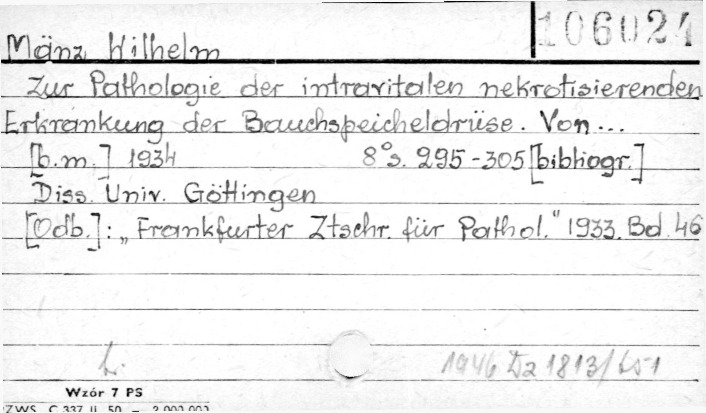 106024
Mänz Wilhelm
Zur Pathologie der intravitalen nekrotisierenden
Erkrankung der Bauchspeicheldrüse. Von...
[b.m.] 1934 8° s. 295-305 [bibliogr.]
Diss. Univ. Göttingen
[Odb.]: „Frankfurter Ztschr. für Pathol." 1933. Bd. 46
1946 Da 1813/
Wzór 7 PS
ZWS. C 337 II 50 — 2.000.000